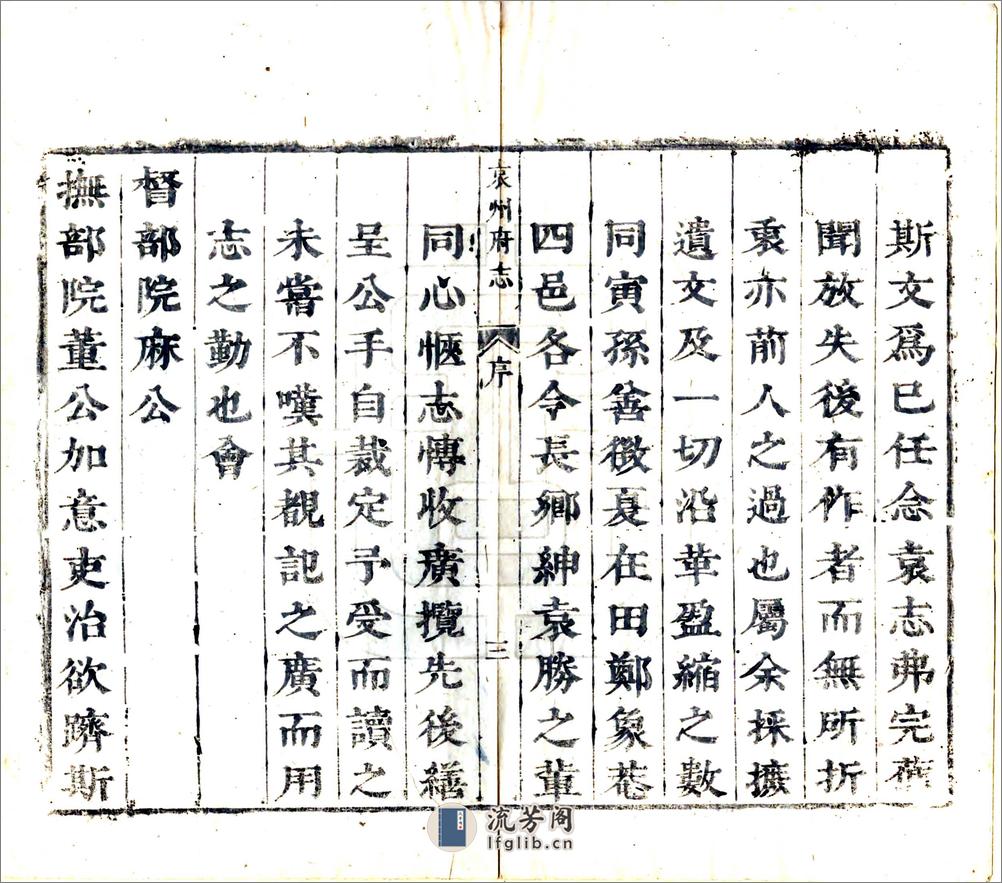 斯文爲已任念袁志弗完舊
聞放失後有作者而無所折
衷亦前人之過也屬余採摭
遺文及一切沿革盈縮之數
同寅孫善徵夏在田鄭象菴
四邑各令長鄉紳袁勝之輩
袁州府志 序 三
同心愜志慱收廣攬先後繕
呈公手自裁定予受而讀之
未嘗不嘆其覩記之廣而用
志之勤也會
督部院麻公
撫部院董公加意吏治欲躋斯
流芳阁
lfglib.cn